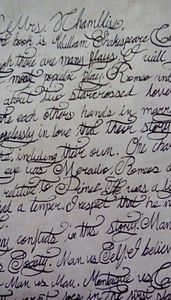 Mrs. Chambliss,
book is William Shakespeare
there are many plays I will
most popular play, Romeo and
about two starcrossed love
each others hands in marr
hopelessly in love that their story
including their own. One cha
was Mercutio, Romeo's
relative to Prince. He was a
had a temper. I respect that he
conflicts in this story. Man
Society. Man vs Self. I believe
vs Man vs. Man. Montague vs C
in the most